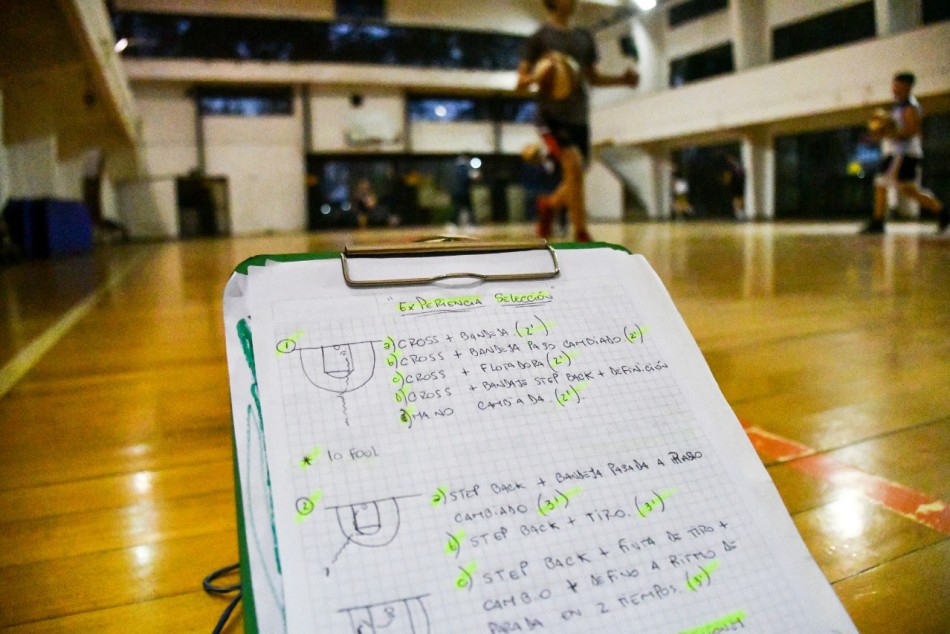 "EXPERIENCIA SELECCIÓN"
1
a) CROSS + BANDEJA. (2')
b) CROSS + BANDEJA PASO CAMBIADO (2')
c) CROSS + FLOTADORA (2')
D) CROSS + BANDEJA STEP BACK + DEFINICIÓN
MANO CAMBIADA. (2')
* 10 FOUL
2
a) STEP BACK + BANDEJA PASADA A
CAMBIADO (3')
b) STEP BACK + TIRO. (3')
c) STEP BACK + FINTA DE TIRO +
CAMBIO + DEFINO A RITMO DE
PARADA EN 2 TIEMPOS. (3')